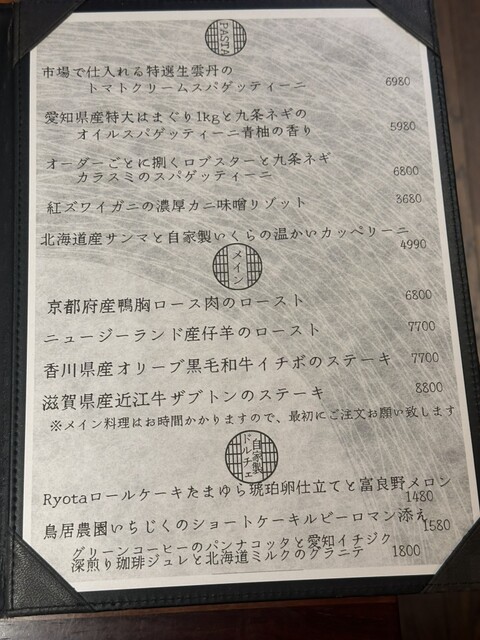 PASTA
市場で仕入れる特選生雲丹の
トマトクリームスパゲッティーニ 6980
愛知県産特大はまぐり1kgと九条ネギの
オイルスパゲッティーニ青柚の香り 5980
オーダーごとに捌くロブスターと九条ネギ
カラスミのスパゲッティーニ 6800
紅ズワイガニの濃厚カニ味噌リゾット 3680
北海道産サンマと自家製いくらの温かいカッペリーニ
4990
メイン
京都府産鴨胸ロース肉のロースト 6800
ニュージーランド産仔羊のロースト 7700
香川県産オリーブ黒毛和牛イチボのステーキ 7700
滋賀県産近江牛ザブトンのステーキ 8800
※メイン料理はお時間かかりますので、最初にご注文お願い致します
自家製
ドルチェ
Ryotaロールケーキたまゆら琥珀卵仕立てと富良野メロン
1480
鳥居農園いちじくのショートケーキルビーロマン添え
1580
グリーンコーヒーのパンナコッタと愛知イチジク
深煎り珈琲ジュレと北海道ミルクのグラニテ 1800